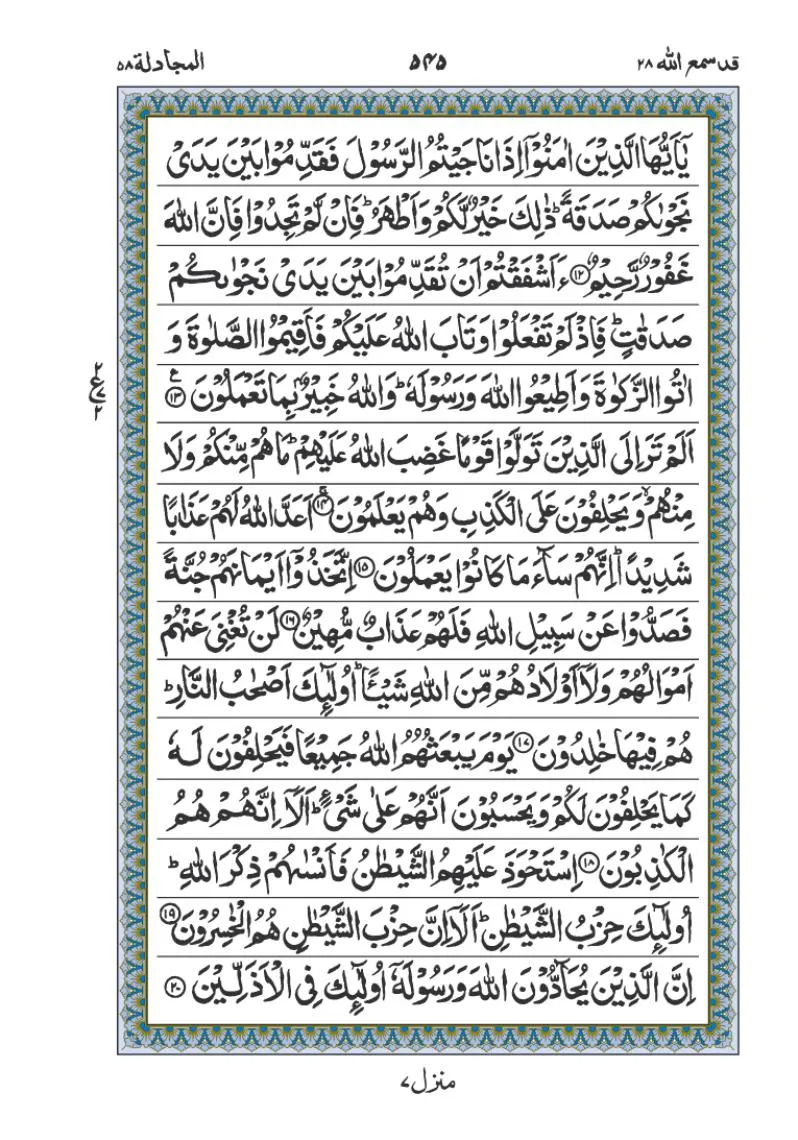 قد سمع الله ۲۸
۵۴۵
المجادلة ۵۸
يٰۤاَيُّهَا الَّذِيْنَ اٰمَنُوْۤا اِذَا نَاجَيْتُمُ الرَّسُوْلَ فَقَدِّمُوْا بَيْنَ يَدَىْ
نَجْوٰىكُمْ صَدَقَةً ؕ ذٰلِكَ خَيْرٌ لَّكُمْ وَاَطْهَرُ ؕ فَاِنْ لَّمْ تَجِدُوْا فَاِنَّ اللّٰهَ
غَفُوْرٌ رَّحِيْمٌ ﴿۱۲﴾ ءَاَشْفَقْتُمْ اَنْ تُقَدِّمُوْا بَيْنَ يَدَىْ نَجْوٰىكُمْ
صَدَقٰتٍ ؕ فَاِذْ لَمْ تَفْعَلُوْا وَتَابَ اللّٰهُ عَلَيْكُمْ فَاَقِيْمُوا الصَّلٰوةَ وَ
اٰتُوا الزَّكٰوةَ وَاَطِيْعُوا اللّٰهَ وَرَسُوْلَهٗ ؕ وَاللّٰهُ خَبِيْرٌۢ بِمَا تَعْمَلُوْنَ ﴿۱۳﴾ ع
اَلَمْ تَرَ اِلَى الَّذِيْنَ تَوَلَّوْا قَوْمًا غَضِبَ اللّٰهُ عَلَيْهِمْ ؕ مَا هُمْ مِّنْكُمْ وَلَا
مِنْهُمْ ۙ وَيَحْلِفُوْنَ عَلَى الْكَذِبِ وَهُمْ يَعْلَمُوْنَ ﴿۱۴﴾ اَعَدَّ اللّٰهُ لَهُمْ عَذَابًا
شَدِيْدًا ؕ اِنَّهُمْ سَآءَ مَا كَانُوْا يَعْمَلُوْنَ ﴿۱۵﴾ اِتَّخَذُوْۤا اَيْمَانَهُمْ جُنَّةً
فَصَدُّوْا عَنْ سَبِيْلِ اللّٰهِ فَلَهُمْ عَذَابٌ مُّهِيْنٌ ﴿۱۶﴾ لَنْ تُغْنِىَ عَنْهُمْ
اَمْوَالُهُمْ وَلَاۤ اَوْلَادُهُمْ مِّنَ اللّٰهِ شَيْـًٔا ؕ اُولٰٓئِكَ اَصْحٰبُ النَّارِ ؕ
هُمْ فِيْهَا خٰلِدُوْنَ ﴿۱۷﴾ يَوْمَ يَبْعَثُهُمُ اللّٰهُ جَمِيْعًا فَيَحْلِفُوْنَ لَهٗ
كَمَا يَحْلِفُوْنَ لَكُمْ وَيَحْسَبُوْنَ اَنَّهُمْ عَلٰى شَىْءٍ ؕ اَلَاۤ اِنَّهُمْ هُمُ
الْكٰذِبُوْنَ ﴿۱۸﴾ اِسْتَحْوَذَ عَلَيْهِمُ الشَّيْطٰنُ فَاَنْسٰىهُمْ ذِكْرَ اللّٰهِ ؕ
اُولٰٓئِكَ حِزْبُ الشَّيْطٰنِ ؕ اَلَاۤ اِنَّ حِزْبَ الشَّيْطٰنِ هُمُ الْخٰسِرُوْنَ ﴿۱۹﴾
اِنَّ الَّذِيْنَ يُحَآدُّوْنَ اللّٰهَ وَرَسُوْلَهٗۤ اُولٰٓئِكَ فِى الْاَذَلِّيْنَ ﴿۲۰﴾
منزل ۷